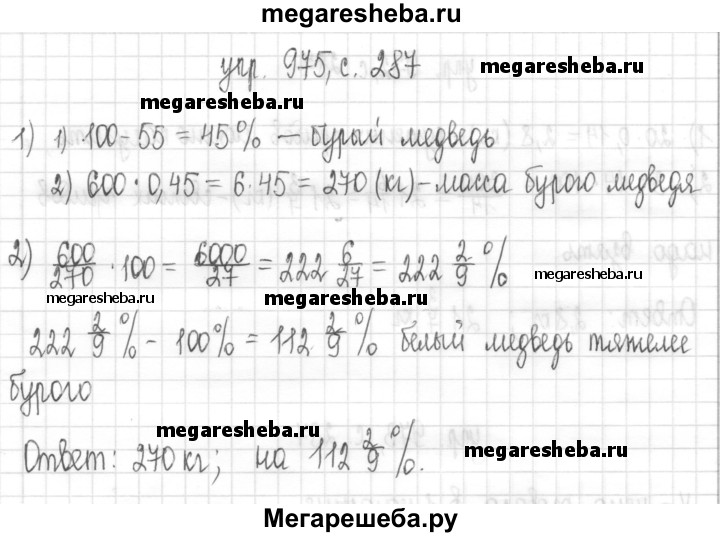 megaresheba.ru
упр. 975, с. 287
megaresheba.ru
megaresheba.ru
1) 1) 100-55 = 45% – бурый медведь
2) 600 · 0,45 = 6 · 45 = 270 (кг) – масса бурого медведя
2) 600/270 · 100 = 6000/27 = 222 6/27 = 222 2/9 %
megaresheba.ru
megaresheba.ru
222 2/9 % - 100% = 112 2/9 % белый медведь тяжелее
бурого
megaresheba.ru
Ответ: 270 кг; на 112 2/9 %.
Мегарешеба.ру